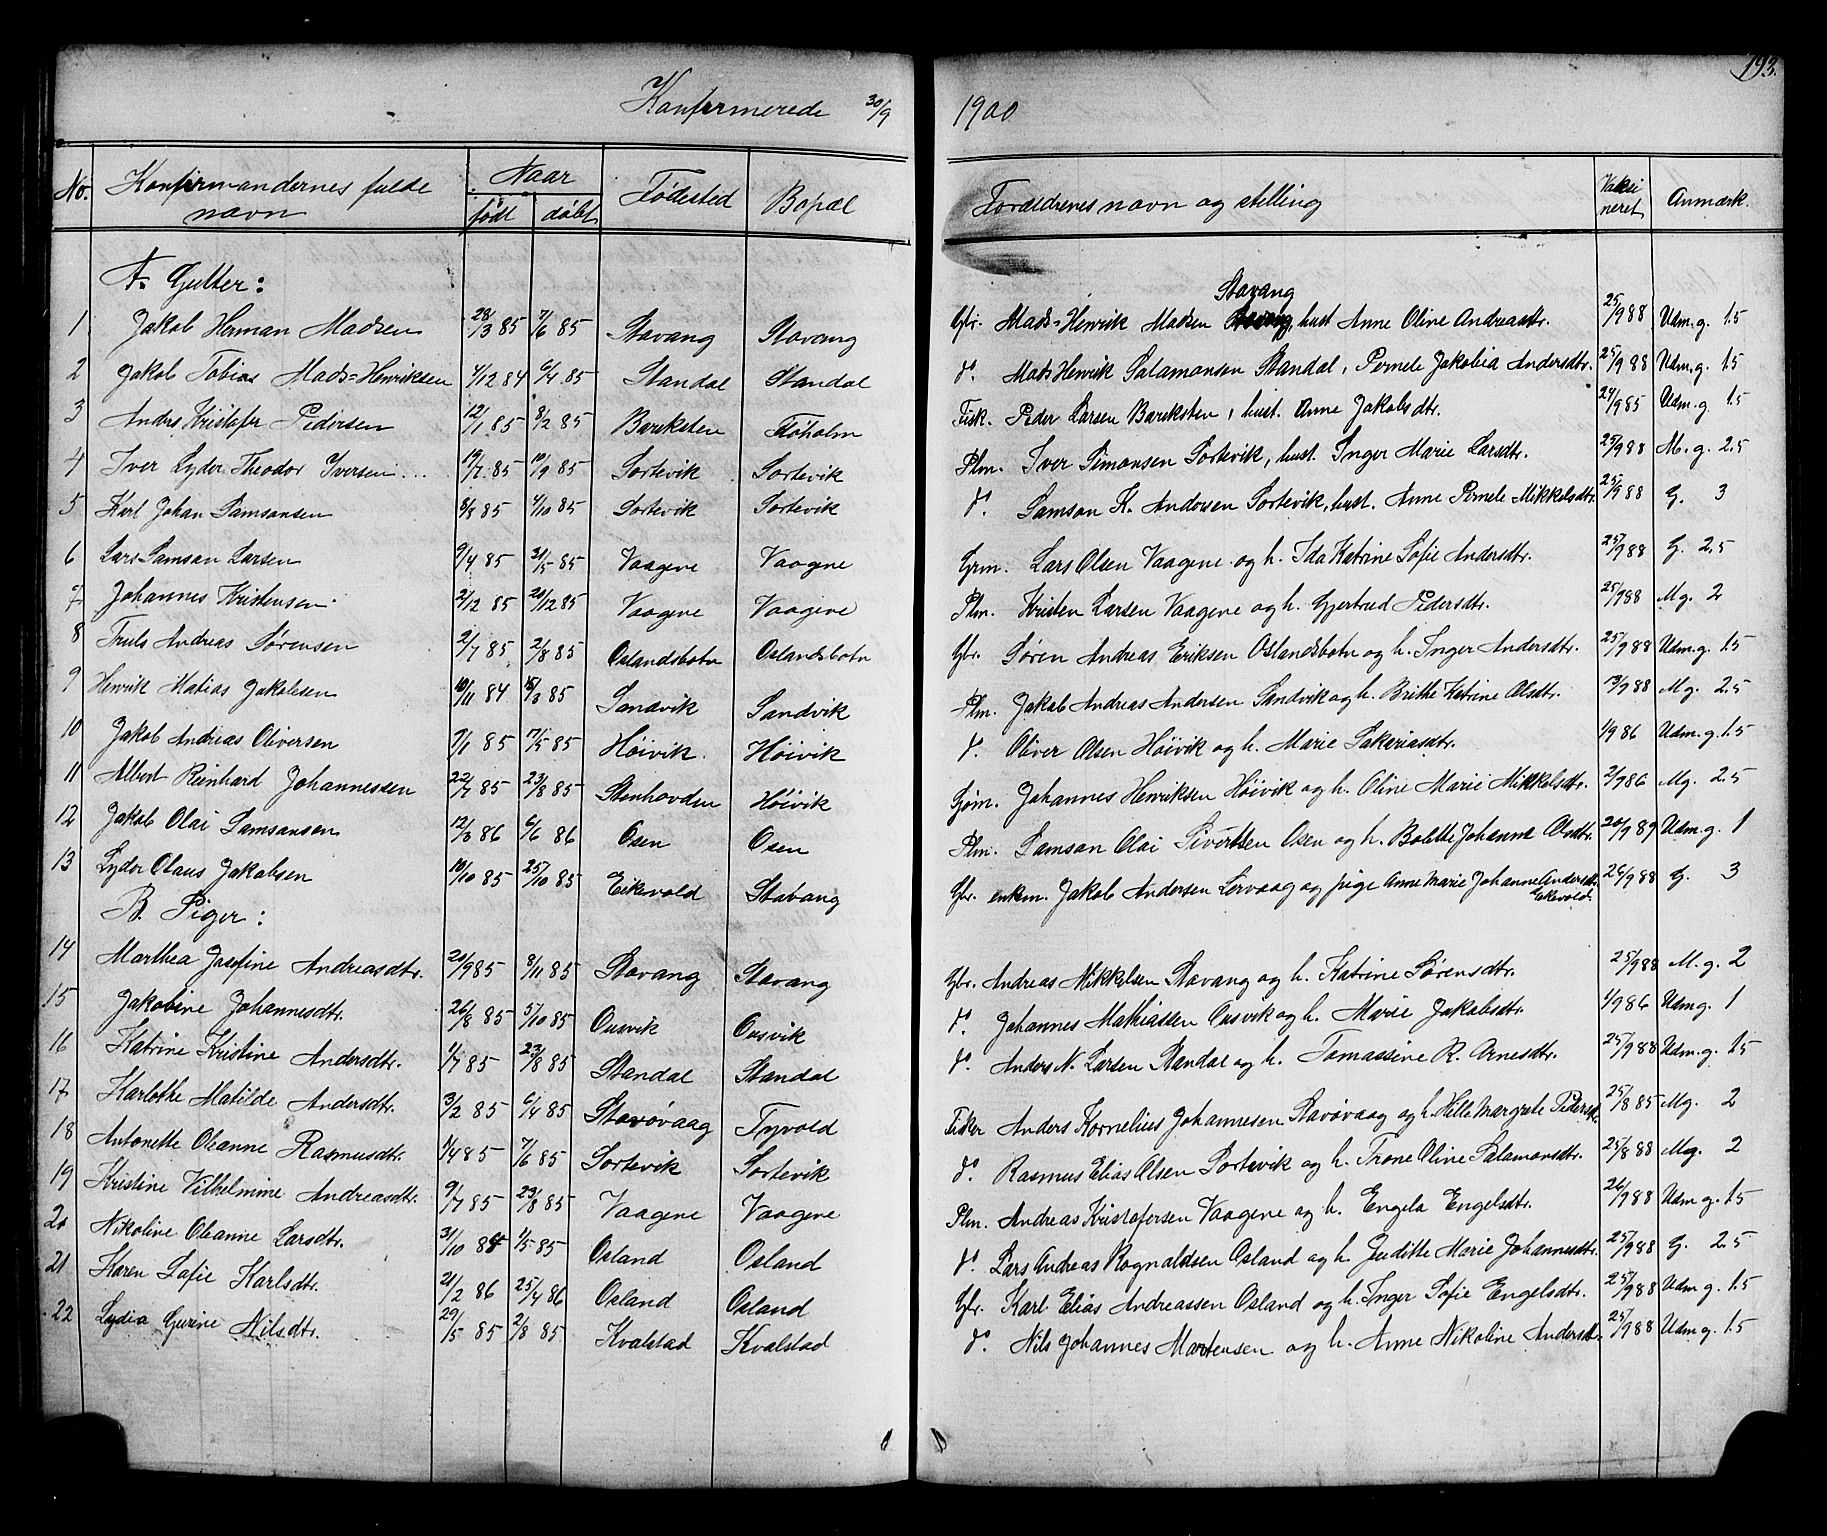 193.
Konfirmerede 30/9 1900
No. Konfirmandernes fulde navn Naar født døbt Fødested Bopæl Forældrenes navn og stilling Vaksineret Anmærk.
A. Gutter:
1 Jakob Herman Madsen 28/3 85 7/6 85 Stavang Stavang Gbr. Mads=Henrik Madsen Stavang, hust Anne Oline Andreasdtr. 25/9 88 Udm.g. 1.5
2 Jakob Tobias Mads=Henriksen 4/12 84 6/4 85 Standal Standal do. Mads Henrik Salamonsen Standal, Pernele Jakobia Andersdtr. 25/9 88 Udm.g. 1.5
3 Anders Kristofer Pedersen 12/1 85 8/2 85 Bareksten Tøholm Fisk. Peder Larsen Bareksten, hust. Anne Jakobsdtr. 24/9 85 Udm.g. 1.5
4 Iver Lyder Theodor Iversen ... 19/7 85 10/9 85 Sortevik Sortevik Plm. Iver Simonsen Sortevik, hust. Inger Marie Larsdtr. 25/9 88 M.g. 2.5
5 Karl Johan Samsonsen 8/8 85 4/10 85 Sortevik Sortevik do. Samson K. Andersen Sortevik, hust. Anne Pernele Mikkelsdtr. 25/9 88 G. 3
6 Lars Samson Larsen 9/4 85 31/5 85 Vaagene Vaagene Grm. Lars Olsen Vaagene og h. Ida Katrine Sofie Andersdtr. 25/9 88 G. 2.5
7 Johannes Kristensen 2/12 85 20/12 85 Vaagene Vaagene Plm. Kristen Larsen Vaagene og h. Gjertrud Pedersdtr. 25/9 88 Mg. 2
8 Truls Andreas Sørensen 2/7 85 2/8 85 Oslandsbotn Oslandsbotn Gbr. Søren Andreas Eriksen Oslandsbotn og h. Inger Andersdtr. 25/9 88 Udm.g. 1.5
9 Henrik Matias Jakobsen 10/11 84 15/3 85 Sandvik Sandvik Plm. Jakob Andreas Andersen Sandvik og h. Brithe Katrine Olsdtr. 13/9 88 Mg. 2.5
10 Jakob Andreas Oliversen 7/1 85 7/5 85 Høivik. Høivik do. Oliver Olsen Høivik og h. Marie Sakariasdtr. 1/9 86 Udm.g. 1.5
11 Albert Reinhard Johannessen 22/7 85 23/8 85 Stenhovden Høivik Sjøm. Johannes Henriksen Høivik og h. Oline Marie Mikkelsdtr. 2/9 86 Mg. 2.5
12 Jakob Olai Samsonsen 12/3 86 6/6 86 Osen Osen Plm. Samson Olai Sivertsen Osen og h. Bolette Johanna Olsdtr. 20/9 89 Udm.g. 1
13 Lyder Olaus Jakobsen 10/10 85 25/10 85 Eikevold Stavang Gbr. enkm. Jakob Andersen Lervaag og pige Anne Marie Johanne Andersdtr. Eikevold. 26/9 88 G. 3
B. Piger:
14 Marthea Josefine Andreasdtr. 20/9 85 8/11 85 Stavang Stavang Gbr. Andreas Mikkelsen Stavang og h. Katrine Sørensdtr. 25/9 88 M.g. 2
15 Jakobine Johannesdtr. 26/8 85 5/10 85 Ousvik Ousvik do. Johannes Mathiassen Ousvik og h. Marie Jakobsdtr. 1/9 86 Udmg. 1
16 Katrine Kristine Andersdtr. 1/7 85 23/8 85 Standal Standal do. Anders N. Larsen Standal og h. Tomassine R. Arnesdtr. 25/9 88 Udm.g. 1.5
17 Karlothe Matilde Andersdtr. 3/2 85 6/4 85 Stavøvaag Tyvold Fisker Anders Kornelius Johannesen Stavøvaag og h. Hille Margrete Pedersdtr. 25/8 85 Mg. 2
18 Antonette Oleanne Rasmusdtr. 1/4 85 7/6 85 Sortevik Sortevik do. Rasmus Elias Olsen Sortevik og h. Trone Oline Salamonsdtr. 25/8 88 Mg. 2
19 Kristine Vilhelmine Andreasdtr. 9/7 85 23/8 85 Vaagene Vaagene Plm. Andreas Kristofersen Vaagene og h. Engela Engelsdtr. 26/9 88 Udm g. 1.5
20 Nikoline Oleanne Larsdtr. 31/10 84 1/5 85 Osland Osland do. Lars Andreas Rognaldsen Osland og h. Juditte Marie Johannesdtr. 25/9 88 G. 2.5
21 Karen Sofie Karlsdtr. 21/2 86 25/4 86 Osland Osland Gbr. Karl Elias Andreassen Osland og h. Inger Sofie Engelsdtr. 25/9 88 Udm g. 1.5
22 Lydia Gurine Nilsdtr. 29/5 85 2/8 85 Kvalstad Kvalstad do. Nils Johannes Martensen og h. Anne Nikoline Andersdtr. 25/9 88 Udm g. 1.5